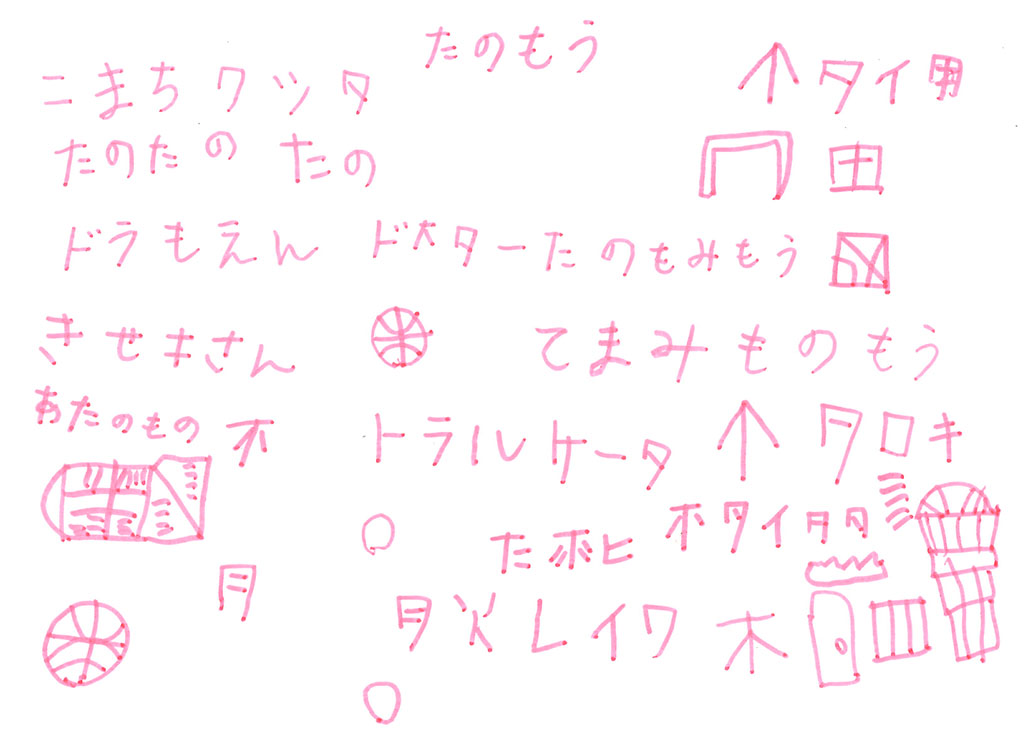 たのもう
こまちワッタ
↑タイ用
たのたのたの
田
ドラもえん
ド大ターたのもみもう
きせキさん
てまみものもう
あたのもの
不
トラルケータ
↑ワロキ
たホヒ
ホタイタタ
月
レイワ
木